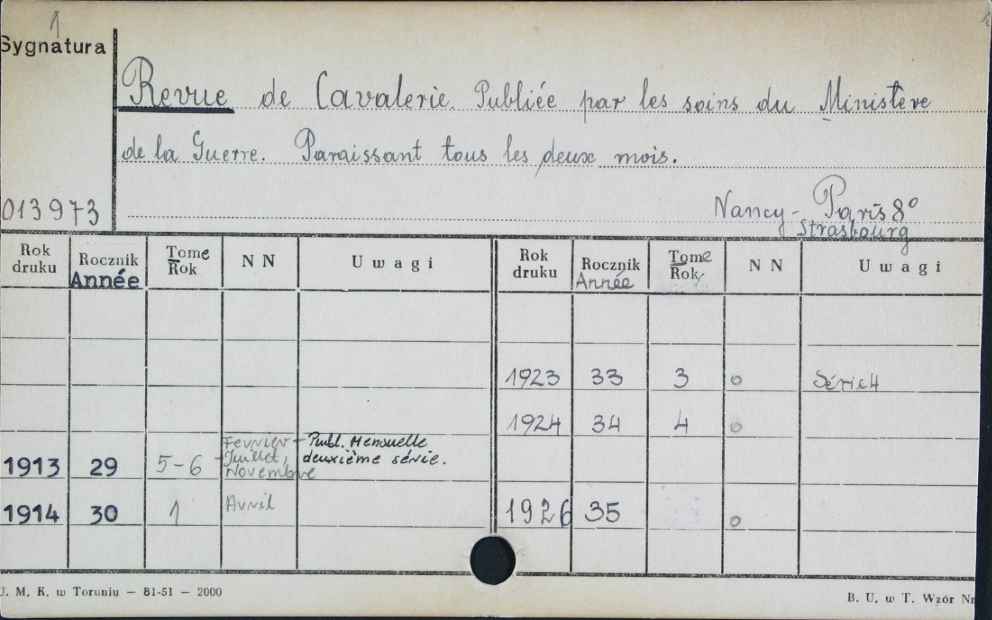 1
Sygnatura
Revue de Cavalerie. Publiée par les soins du Ministère
de la Guerre. Paraissant tous les deux mois.
013973
Nancy - Paris 8°
Strasbourg
Rok druku | Rocznik Année | Tome Rok | NN | Uwagi | Rok druku | Rocznik Année | Tome Rok | NN | Uwagi
1923 | 33 | 3 | o | Série 4
1924 | 34 | 4 | o
1913 | 29 | 5-6 | Fevrier - Juillet, Novembre | Publ. Mensuelle deuxième série.
1914 | 30 | 1 | Avril
1926 | 35 | o
U. M. K. w Toruniu — 81-51 — 2000
B. U. w T. Wzór Nr